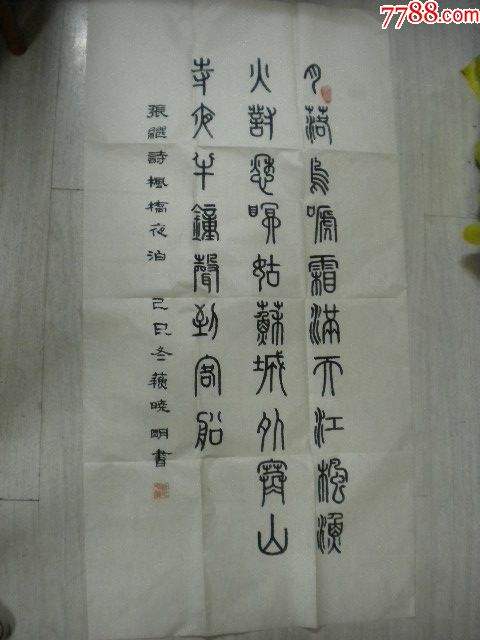 7788.com
月落烏嗁霜滿天江楓漁
火對愁眠姑蘇城外寒山
寺夜半鐘聲到客船
張繼詩楓橋夜泊 己巳冬曉明書